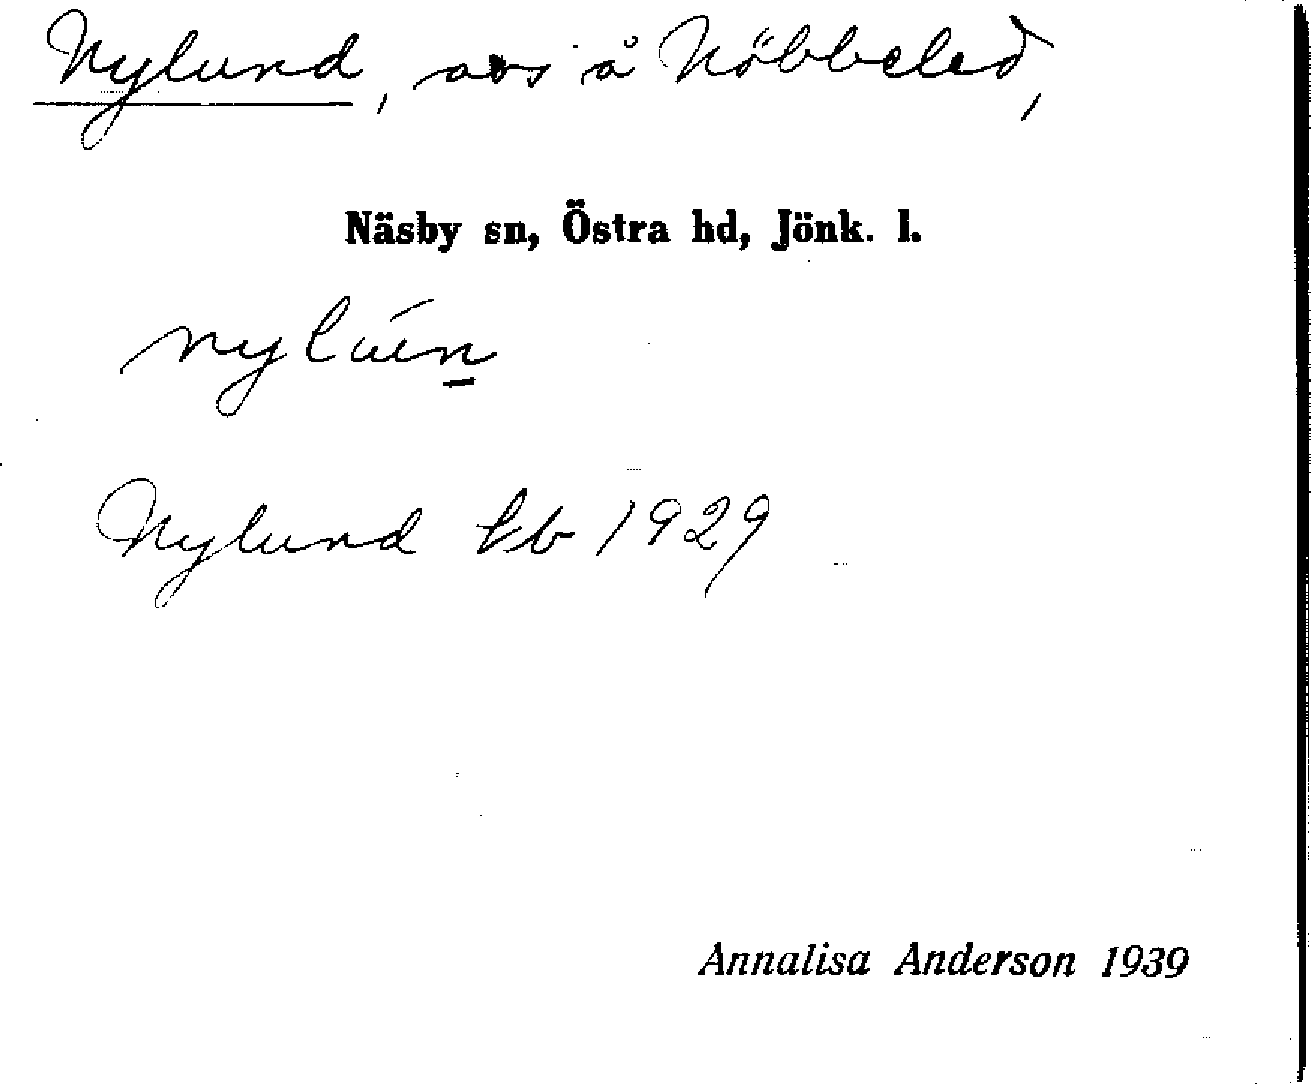 Nylund, avs å Nöbbeled,
Näsby sn, Östra hd, Jönk. l.
Nylund Lb 1929
Annalisa Anderson 1939